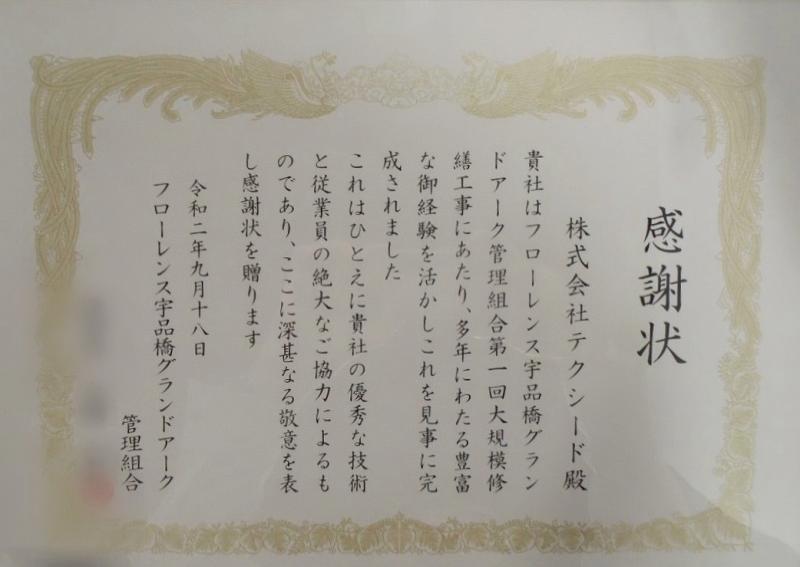 感謝状
株式会社テクシード殿
貴社はフローレンス宇品橋グラン
ドアーク管理組合第一回大規模修
繕工事にあたり、多年にわたる豊富
な御経験を活かしこれを見事に完
成されました
これはひとえに貴社の優秀な技術
と従業員の絶大なご協力によるも
のであり、ここに深甚なる敬意を表
し感謝状を贈ります
令和二年九月十八日
フローレンス宇品橋グランドアーク
管理組合